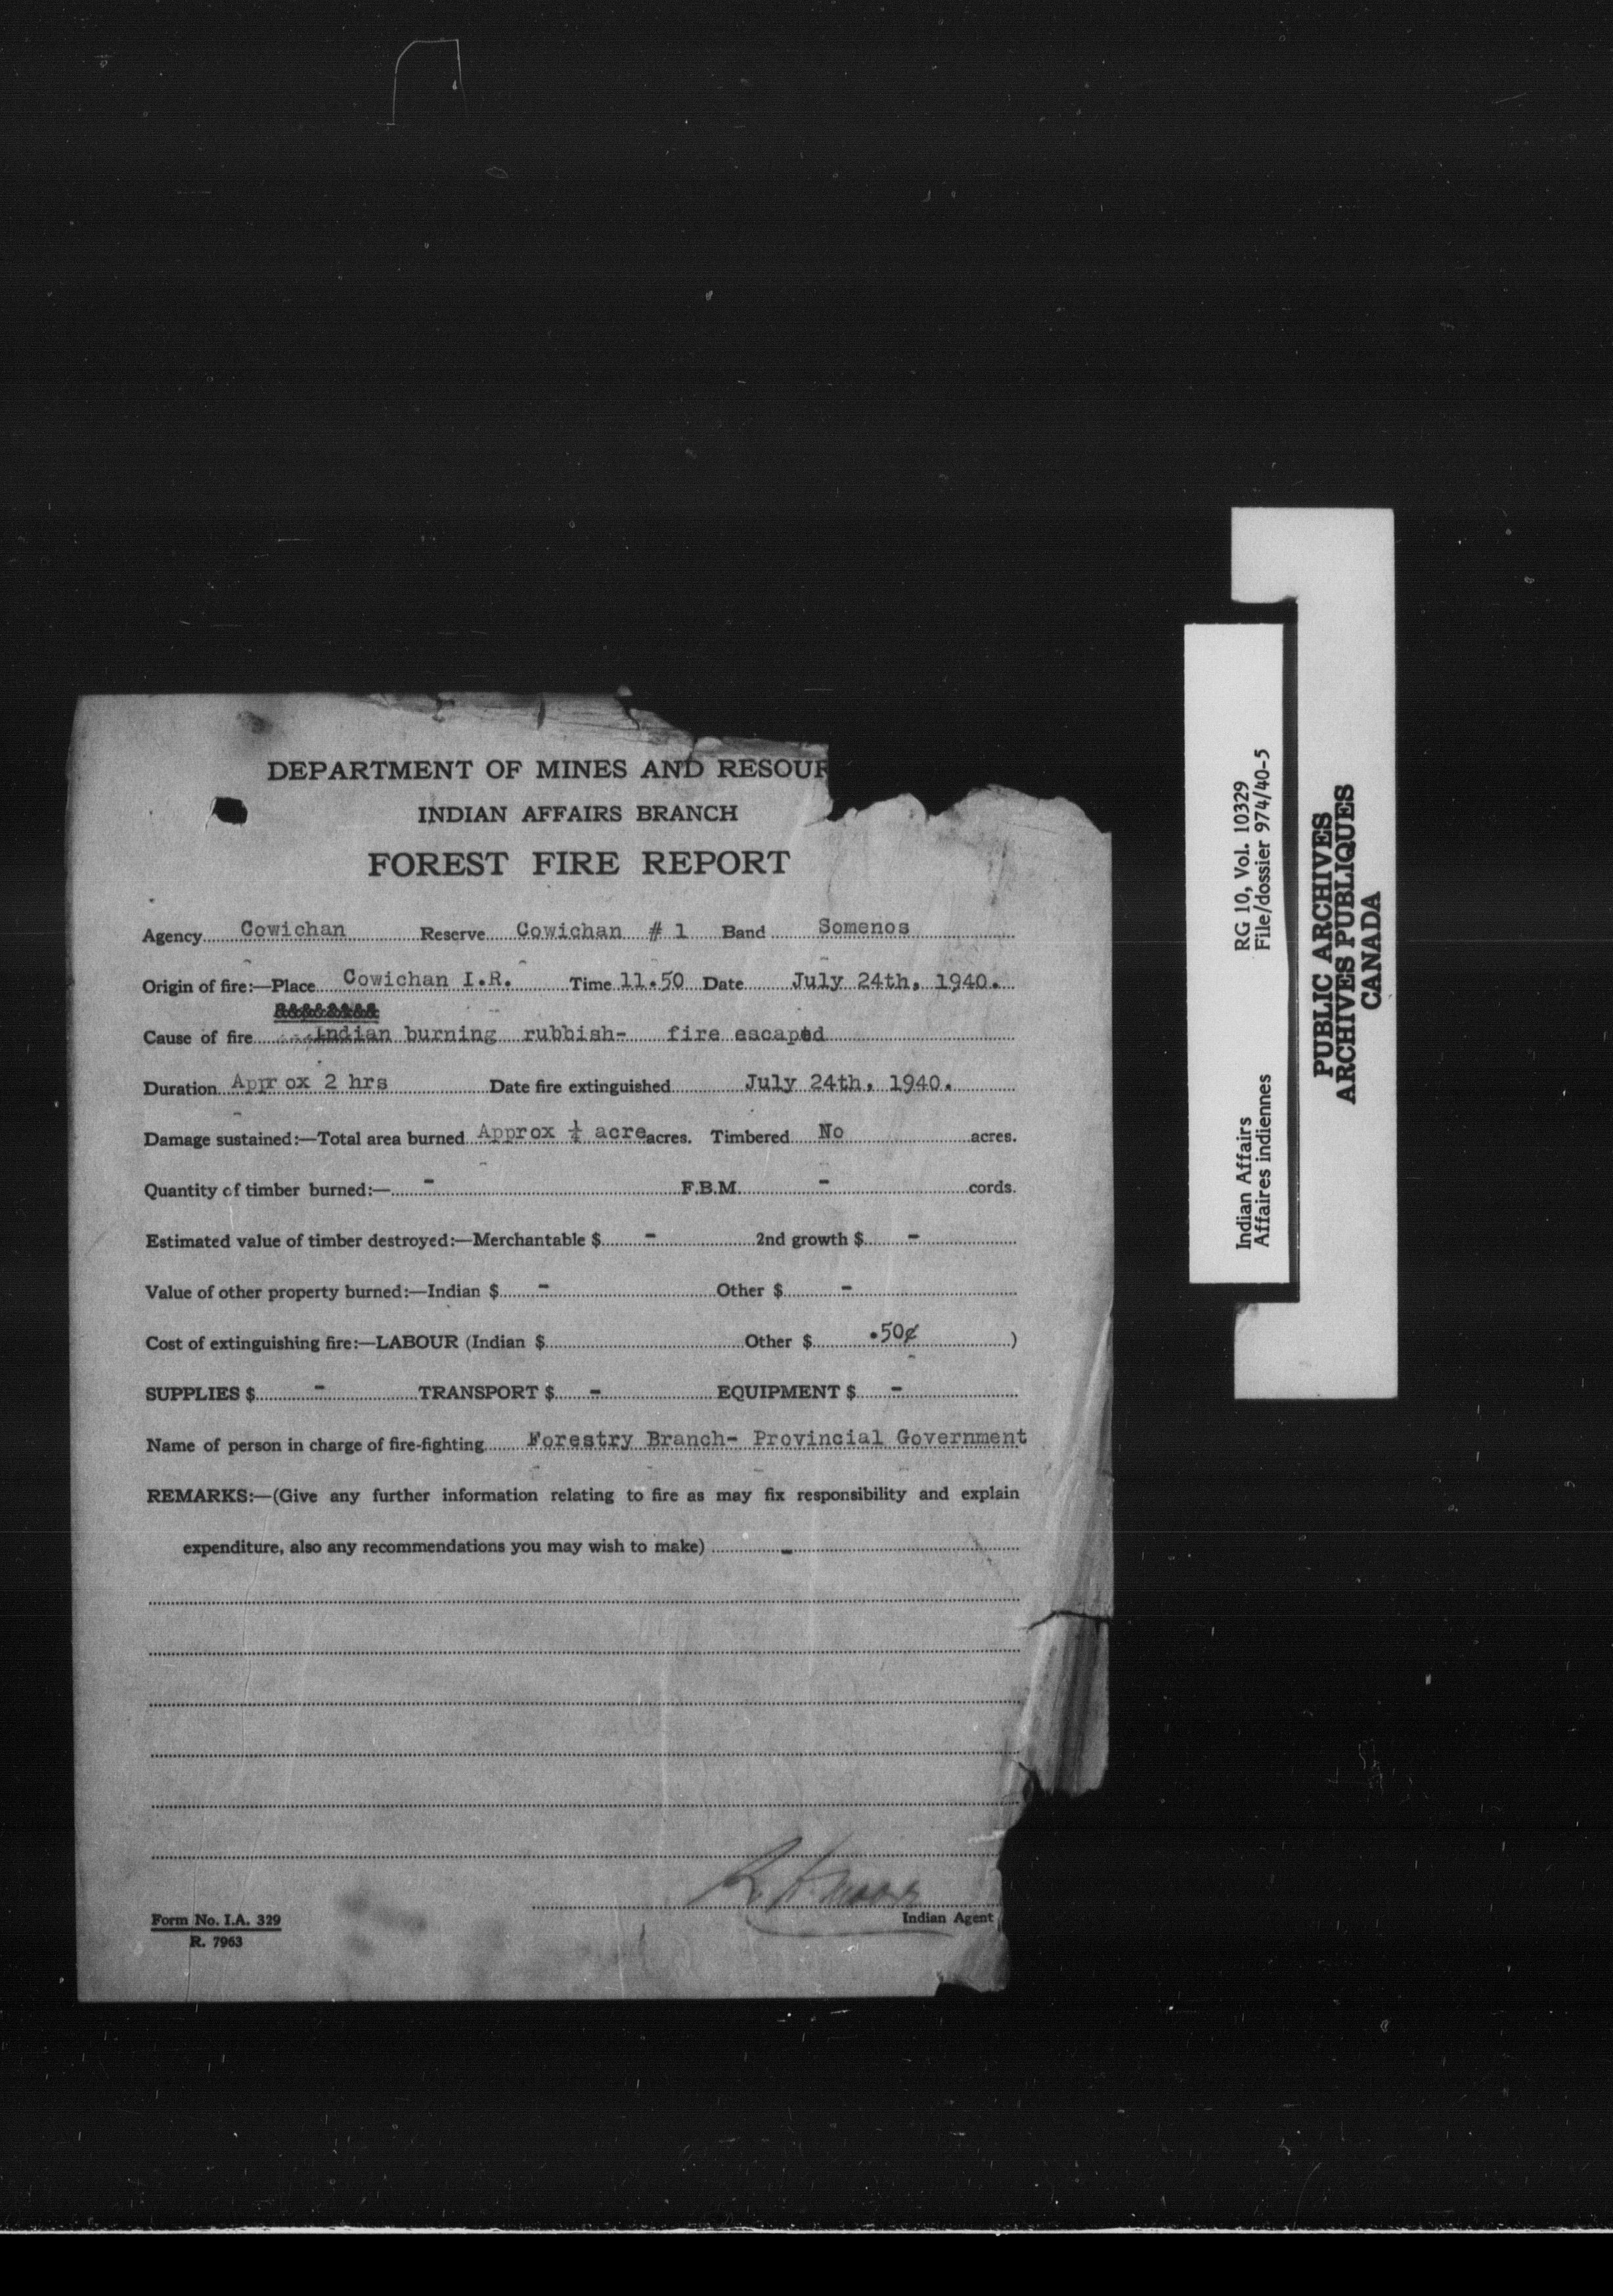 DEPARTMENT OF MINES AND RESOUR
INDIAN AFFAIRS BRANCH
FOREST FIRE REPORT
Agency Cowichan Reserve Cowichan # 1 Band Somenos
Origin of fire:—Place Cowichan I.R. Time 11.50 Date July 24th, 1940.
Cause of fire Indian burning rubbish- fire escaped
Duration Approx 2 hrs Date fire extinguished July 24th, 1940.
Damage sustained:—Total area burned Approx acre acres. Timbered No acres.
Quantity of timber burned:— - F.B.M. - cords.
Estimated value of timber destroyed:—Merchantable $ - 2nd growth $ -
Value of other property burned:—Indian $ - Other $ -
Cost of extinguishing fire:—LABOUR (Indian $ Other $ .50¢ )
SUPPLIES $ - TRANSPORT $ - EQUIPMENT $ -
Name of person in charge of fire-fighting Forestry Branch- Provincial Government
REMARKS:—(Give any further information relating to fire as may fix responsibility and explain
expenditure, also any recommendations you may wish to make) -
Indian Agent
Form No. I.A. 329
R. 7963
Indian Affairs RG 10, Vol. 10329
Affaires indiennes File/dossier 974/40-5
PUBLIC ARCHIVES
ARCHIVES PUBLIQUES
CANADA